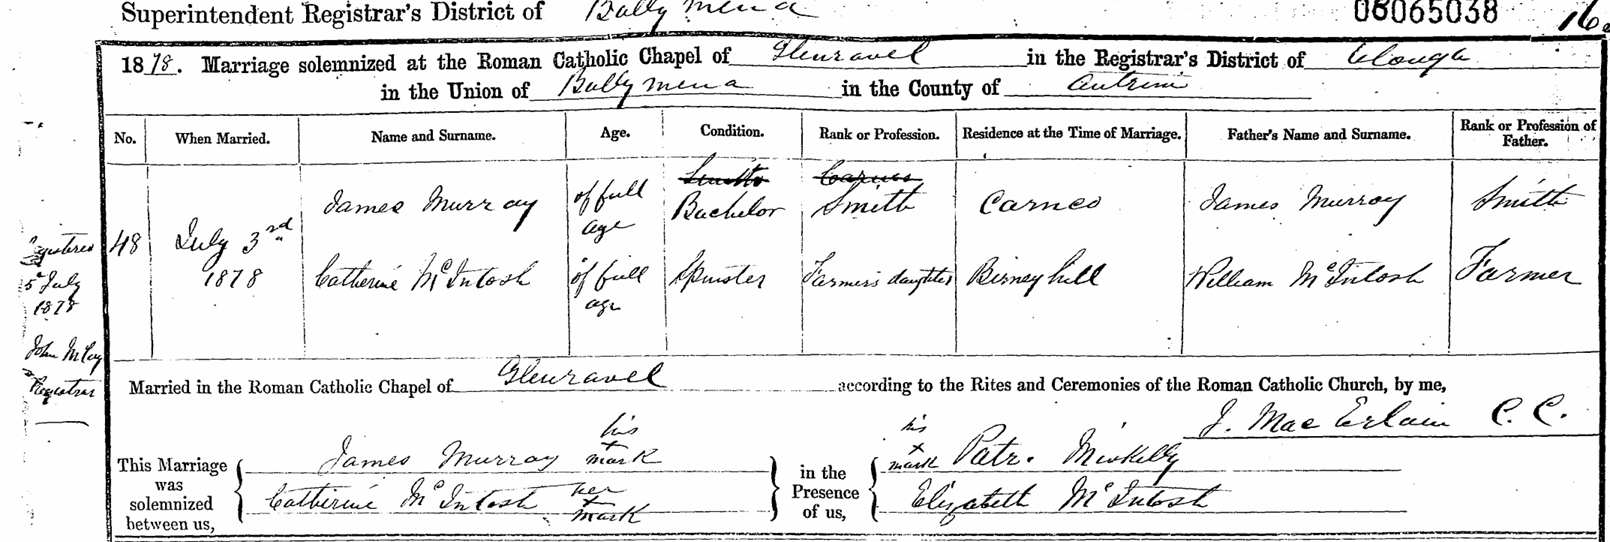 Superintendent Registrar's District of Ballymena 06065038 16
1878. Marriage solemnized at the Roman Catholic Chapel of Glenravel in the Registrar's District of Clough
in the Union of Ballymena in the County of Antrim
No. When Married. Name and Surname. Age. Condition. Rank or Profession. Residence at the Time of Marriage. Father's Name and Surname. Rank or Profession of Father.
48 July 3rd 1878 James Murray of full age Bachelor Smith Carnco James Murray Smith
Catherine McIntosh of full age Spinster Farmer's daughter Birneyhill William McIntosh Farmer
Registered 5 July 1878 John Registrar
Married in the Roman Catholic Chapel of Glenravel according to the Rites and Ceremonies of the Roman Catholic Church, by me,
J. MacErlain C.C.
This Marriage was solemnized between us,
James Murray his x mark
Catherine McIntosh her x mark
in the Presence of us,
his x mark Patr.
Elizabeth McIntosh